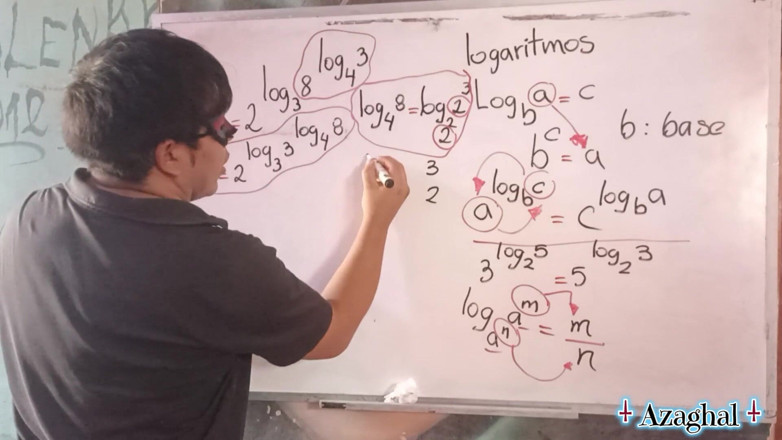 LENK
012
= 2^log_3 8^log_4 3
= 2^log_3 3^log_4 8
log_4 8 = log_2^2 2^3
3
2
logaritmos
Log_b a = c
b^c = a
b : base
a^log_b c = c^log_b a
3^log_2 5 = 5^log_2 3
log_a^n a^m = m/n
Azaghal